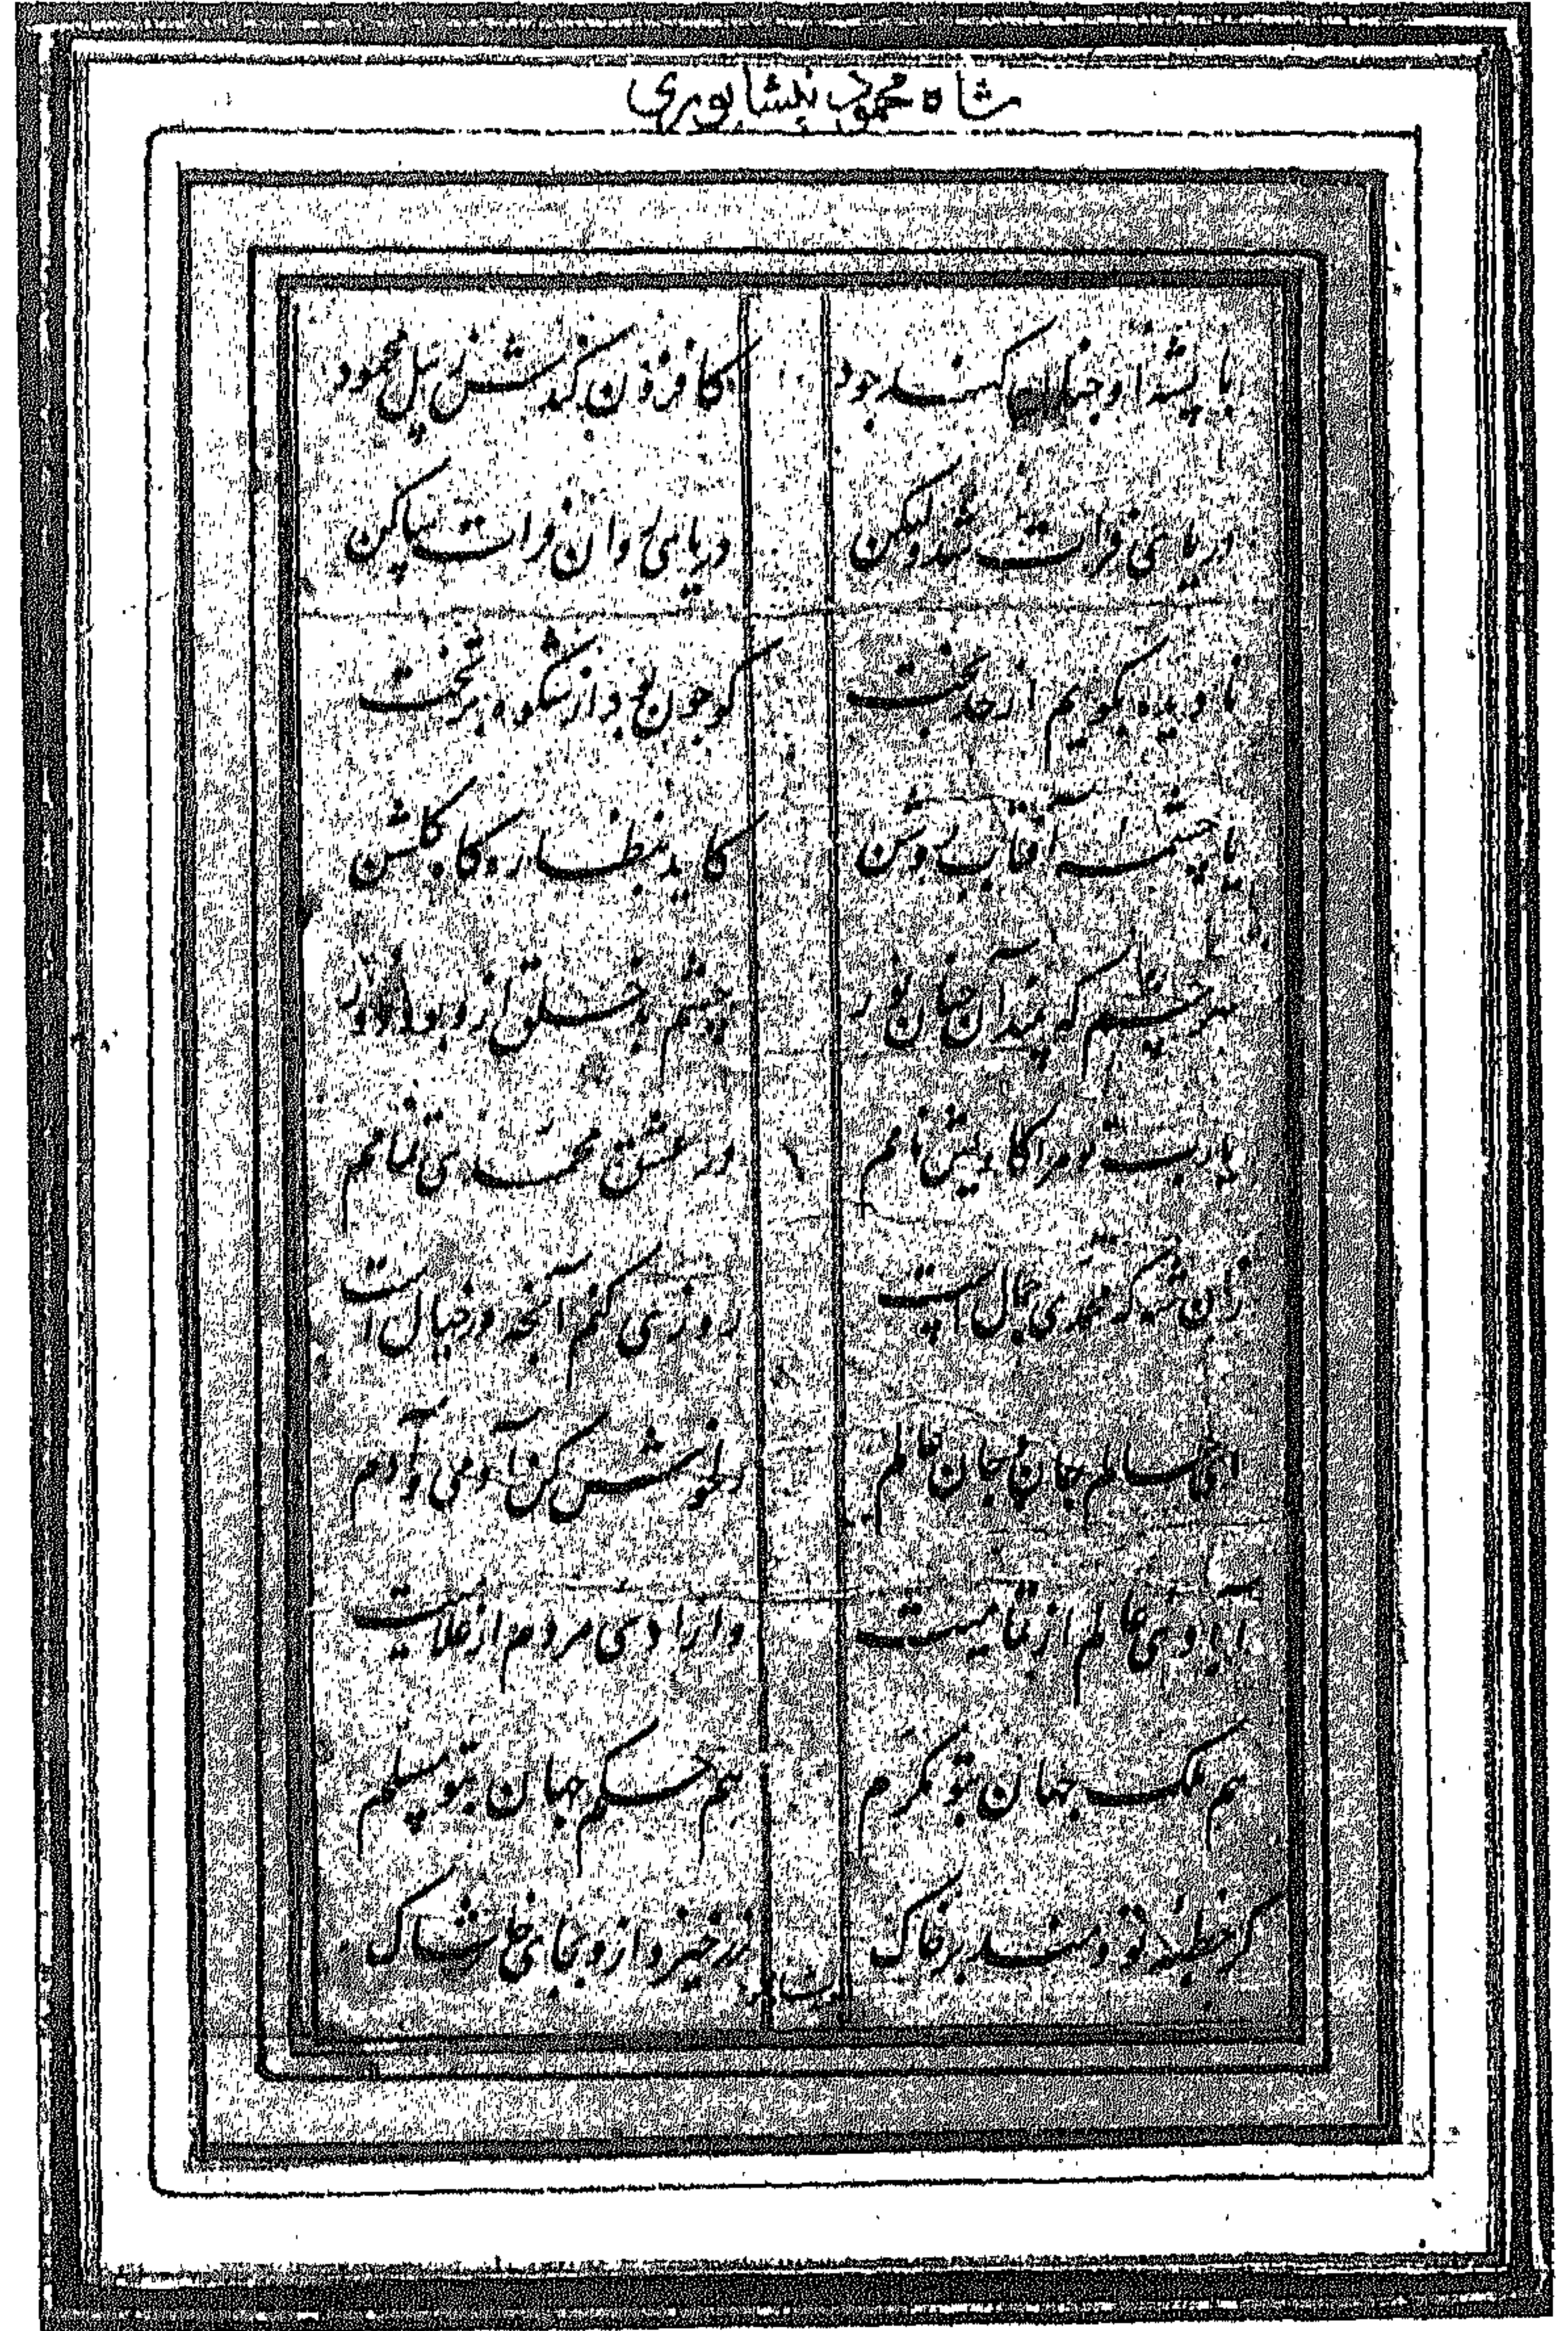 شاه محمود نیشابوری
با پیشه او چنان کند جود
کافزون کندش ز پیل محمود
دریای فرات شد ولیکن
دریای روان فرات ساکن
نادیده بگویم از جد بخت
کو چون بود از شکوه بر تخت
یا چشمه آفتاب روشن
کاید بنظاره‌گاه گلشن
سر چشم که بیند آن چنان نور
چشم بد خلق ازو بود دور
یارب تو مرا کاویس نامم
در عشق محمدی تمامم
زان شه که محمدی جمال است
روزی کنم آنچه در خیال است
عالم جان و جان عالم
دلخوش کن آدمی و آدم
آبادی عالم از تمامیت
وآزادی مردم از غلامیت
هم ملک جهان بتو مکرم
هم حکم جهان بتو مسلم
گر خطبه تو دمند بر خاک
زر خیزد ازو بجای خاشاک